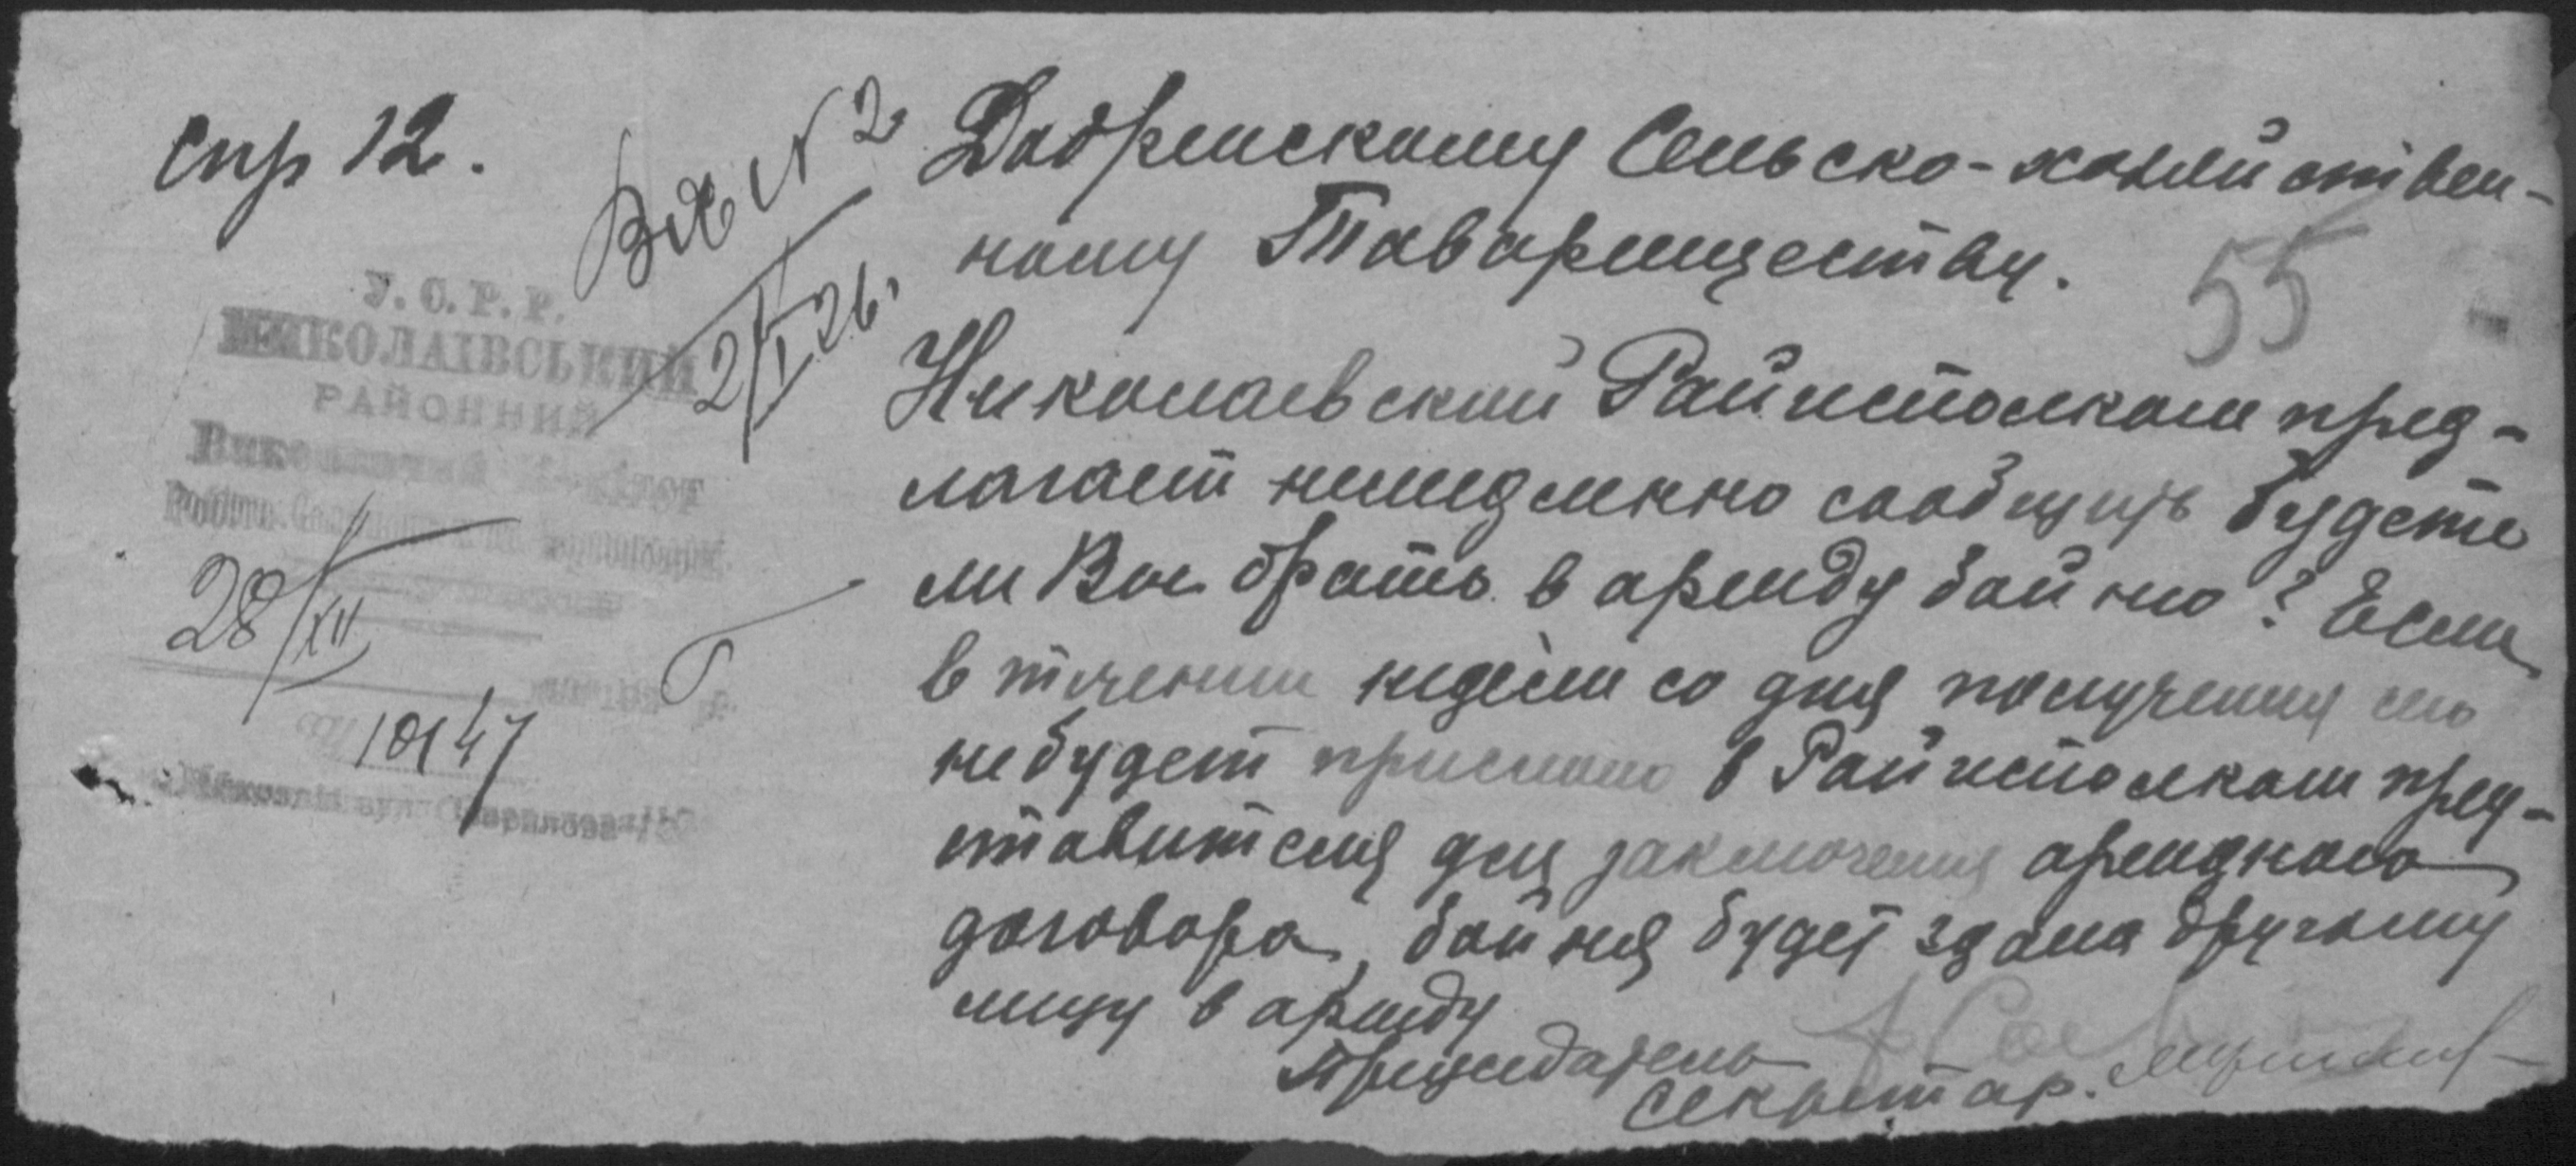 спр 12.
Вх № 2
2/I 26.
55
У. С. Р. Р.
МИКОЛАІВСЬКИЙ
РАЙОННИЙ
28/XII
10147
Добренскому Сельско-хозяйствен-
ному Товариществу.
Николаевский Райисполком пред-
лагает немедленно сообщить будете
ли Вы брать в аренду бойню? Если
в течении недели со дня получения сего
не будет прислано в Райисполком пред-
ставителя для заключения арендного
договора, бойня будет здана другому
лицу в аренду
Председатель
Секретар.